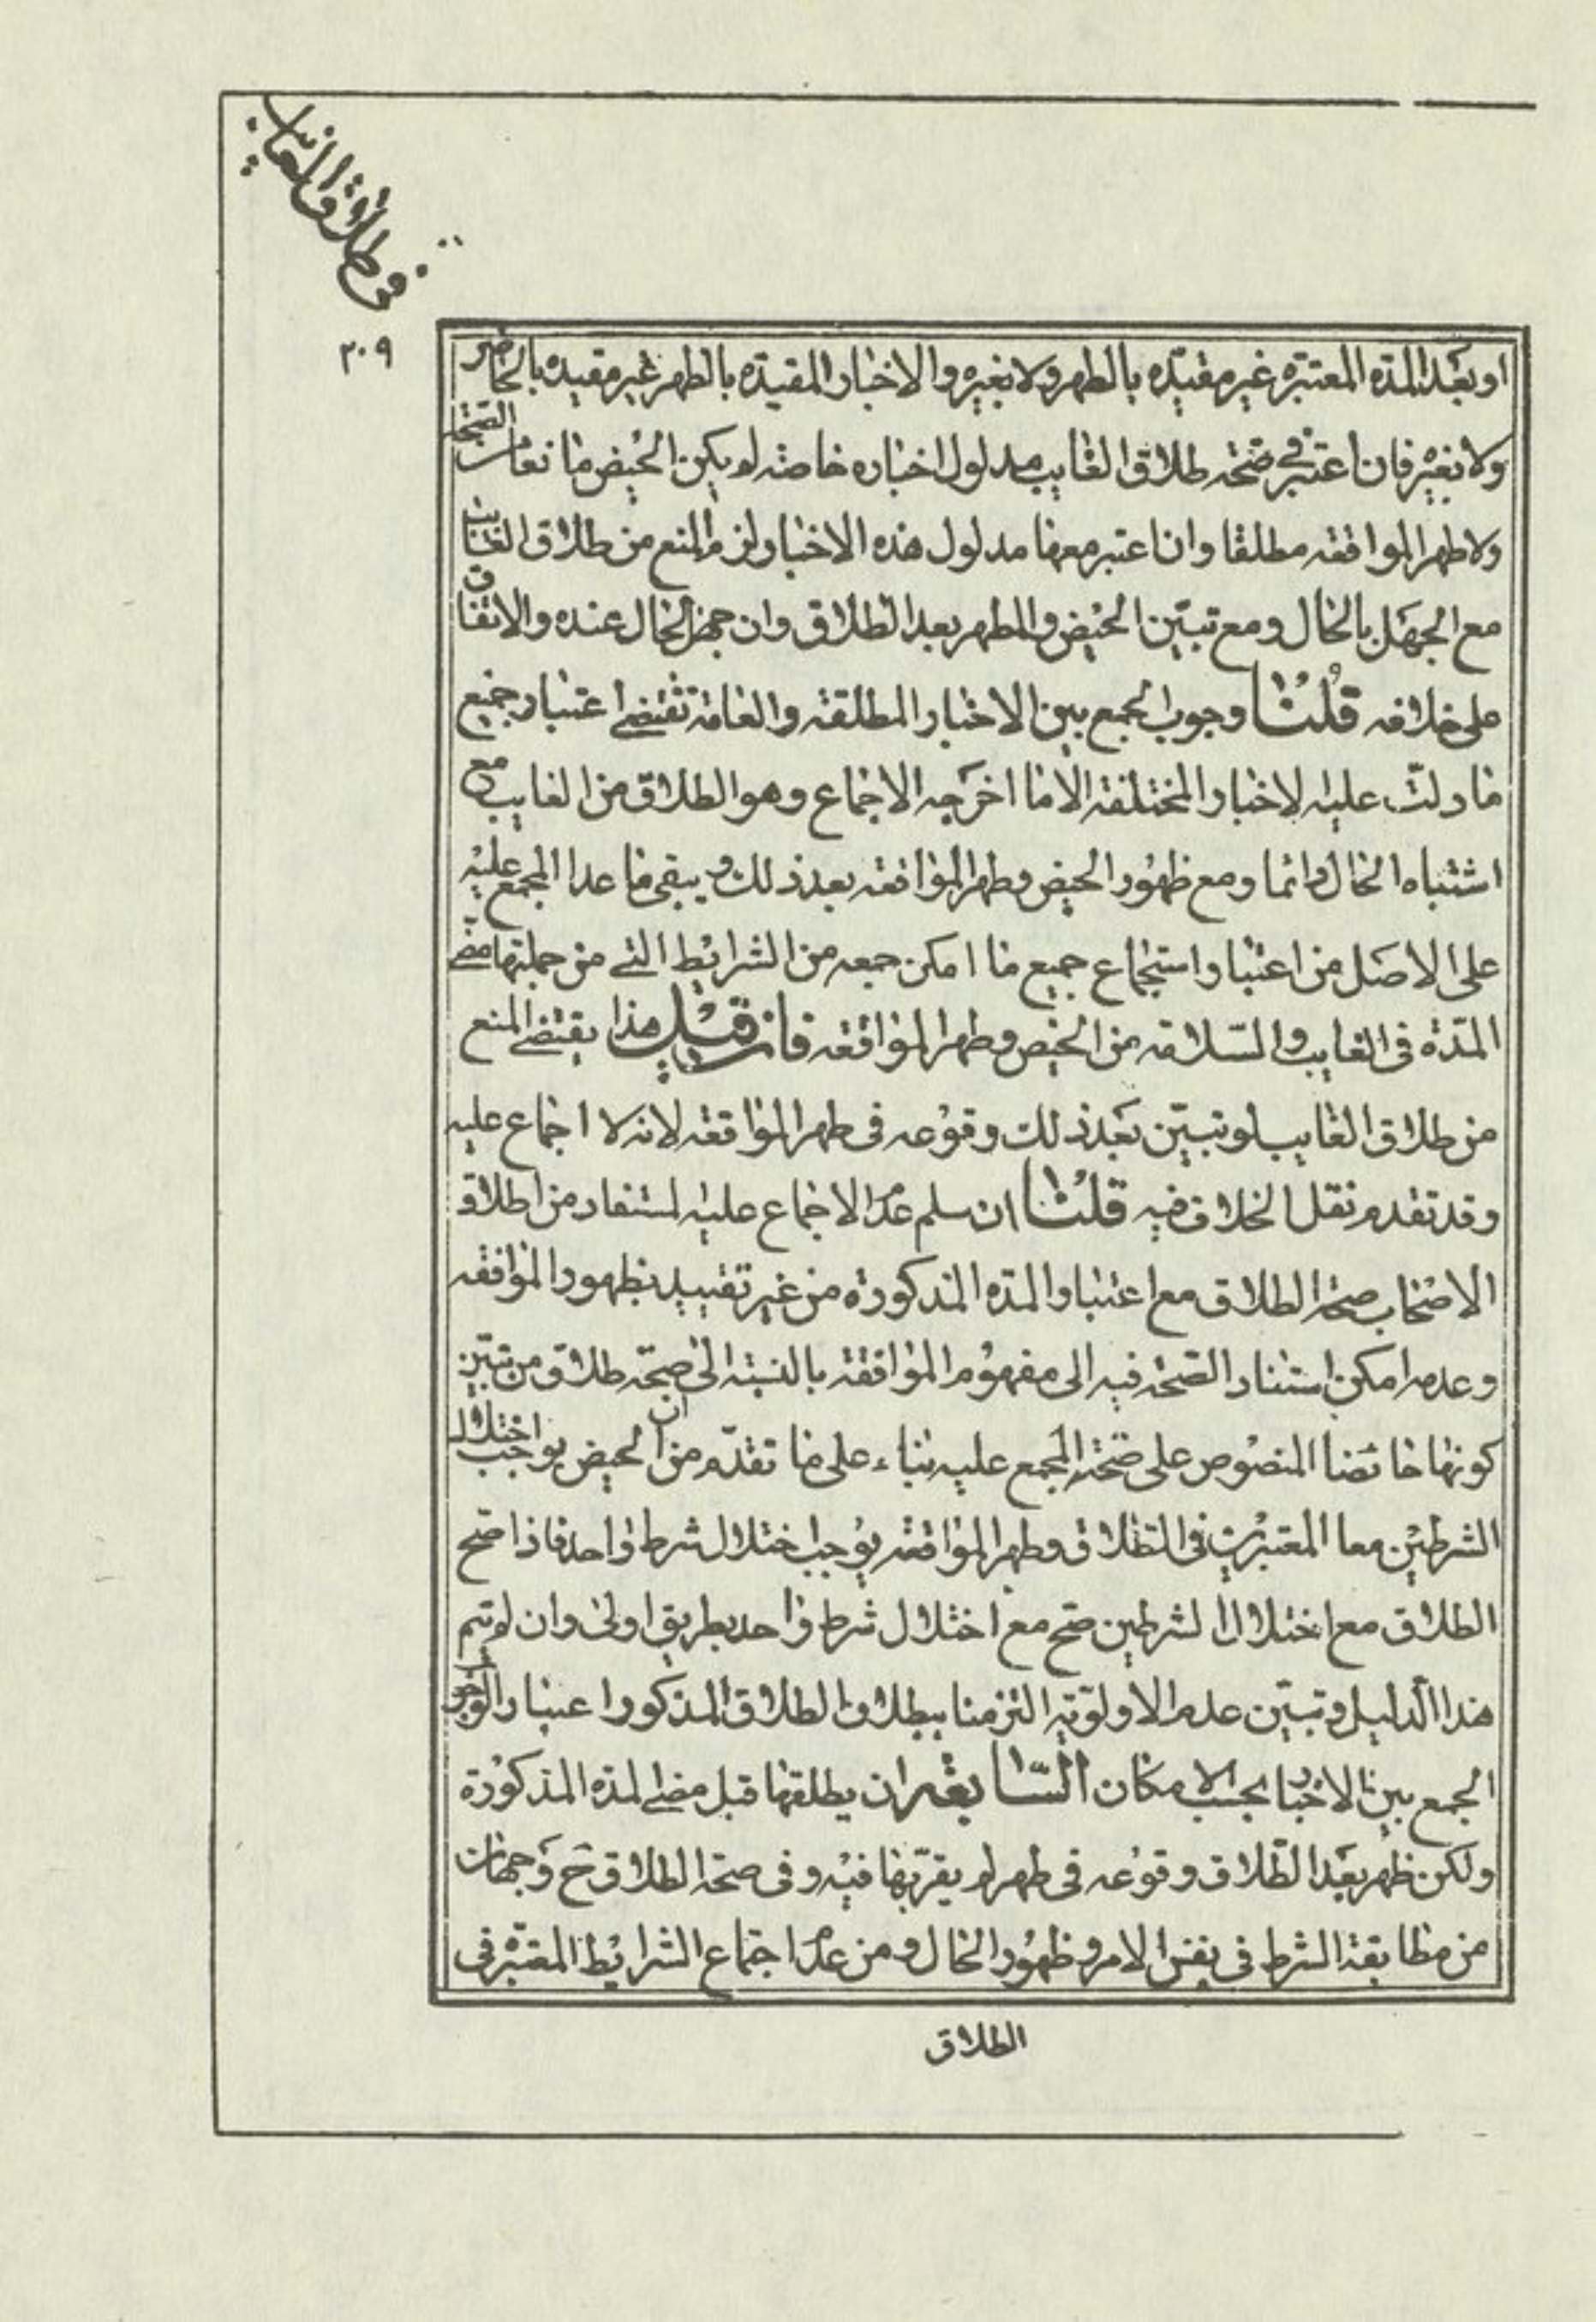 في طلاق الغايب
٢٠٩
او بعد المدة المعتبرة غير مقيدة بالطهر ولا بغيره والاخبار المقيدة بالطهر غير مقيده بالحاضر
ولا بغيره فان اعتبر في صحة طلاق الغايب مدلول اخباره خاصة لم يكن الحيض مانعا من الصحة
ولا طهر المواقعه مطلقا وان اعتبر معها مدلول هذه الاخبار لزم المنع من طلاق الغايب
مع الجهل بالحال ومع تبيّن الحيض والطهر بعد الطلاق وان جهل الحال عنده والاتفاق
على خلافه قلنا وجوب الجمع بين الاخبار المطلقة والعامة تقتضي اعتبار جميع
ما دلّت عليه الاخبار المختلفة الا ما اخرجه الاجماع وهو الطلاق من الغايب مع
اشتباه الحال دائما ومع ظهور الحيض وطهر المواقعه بعد ذلك ويبقى ما عدا المجمع عليه
على الاصل من اعتبار استجماع جميع ما امكن جمعه من الشرايط التي من جملتها مضي
المدّة في الغايب والسّلامة من الحيض وطهر المواقعه فان قيل هذا يقتضي المنع
من طلاق الغايب لو تبيّن بعد ذلك وقوعه في طهر المواقعه لانه لا اجماع عليه
وقد تقدم نقل الخلاف فيه قلنا ان سلم عدم الاجماع عليه المستفاد من اطلاق
الاصحاب صحة الطلاق مع اعتبار المدة المذكورة من غير تقييد بظهور المواقعه
وعدمه امكن استناد الصحة فيه الى مفهوم الموافقة بالنسبة الى صحة طلاق من تبيّن
كونها حائضا المنصوص على صحته المجمع عليه بناء على ما تقدّم من ان الحيض يوجب اختلال
الشرطين معا المعتبرين في الطلاق وطهر المواقعه يوجب اختلال شرط واحد فاذا صح
الطلاق مع اختلال الشرطين صح مع اختلال شرط واحد بطريق اولى وان لم يتم
هذا الدليل وتبيّن عدم الاولويّة التزمنا ببطلان الطلاق المذكور اعتبارا لوجوب
الجمع بين الاخبار بحسب الامكان السّابعة ان يطلقها قبل مضي المدة المذكورة
ولكن ظهر بعد الطّلاق وقوعه في طهر لم يقربها فيه وفي صحة الطلاق ح وجهان
من مطابقة الشرط في نفس الامر وظهور الحال ومن عدم اجتماع الشرايط المعتبرة في
الطلاق